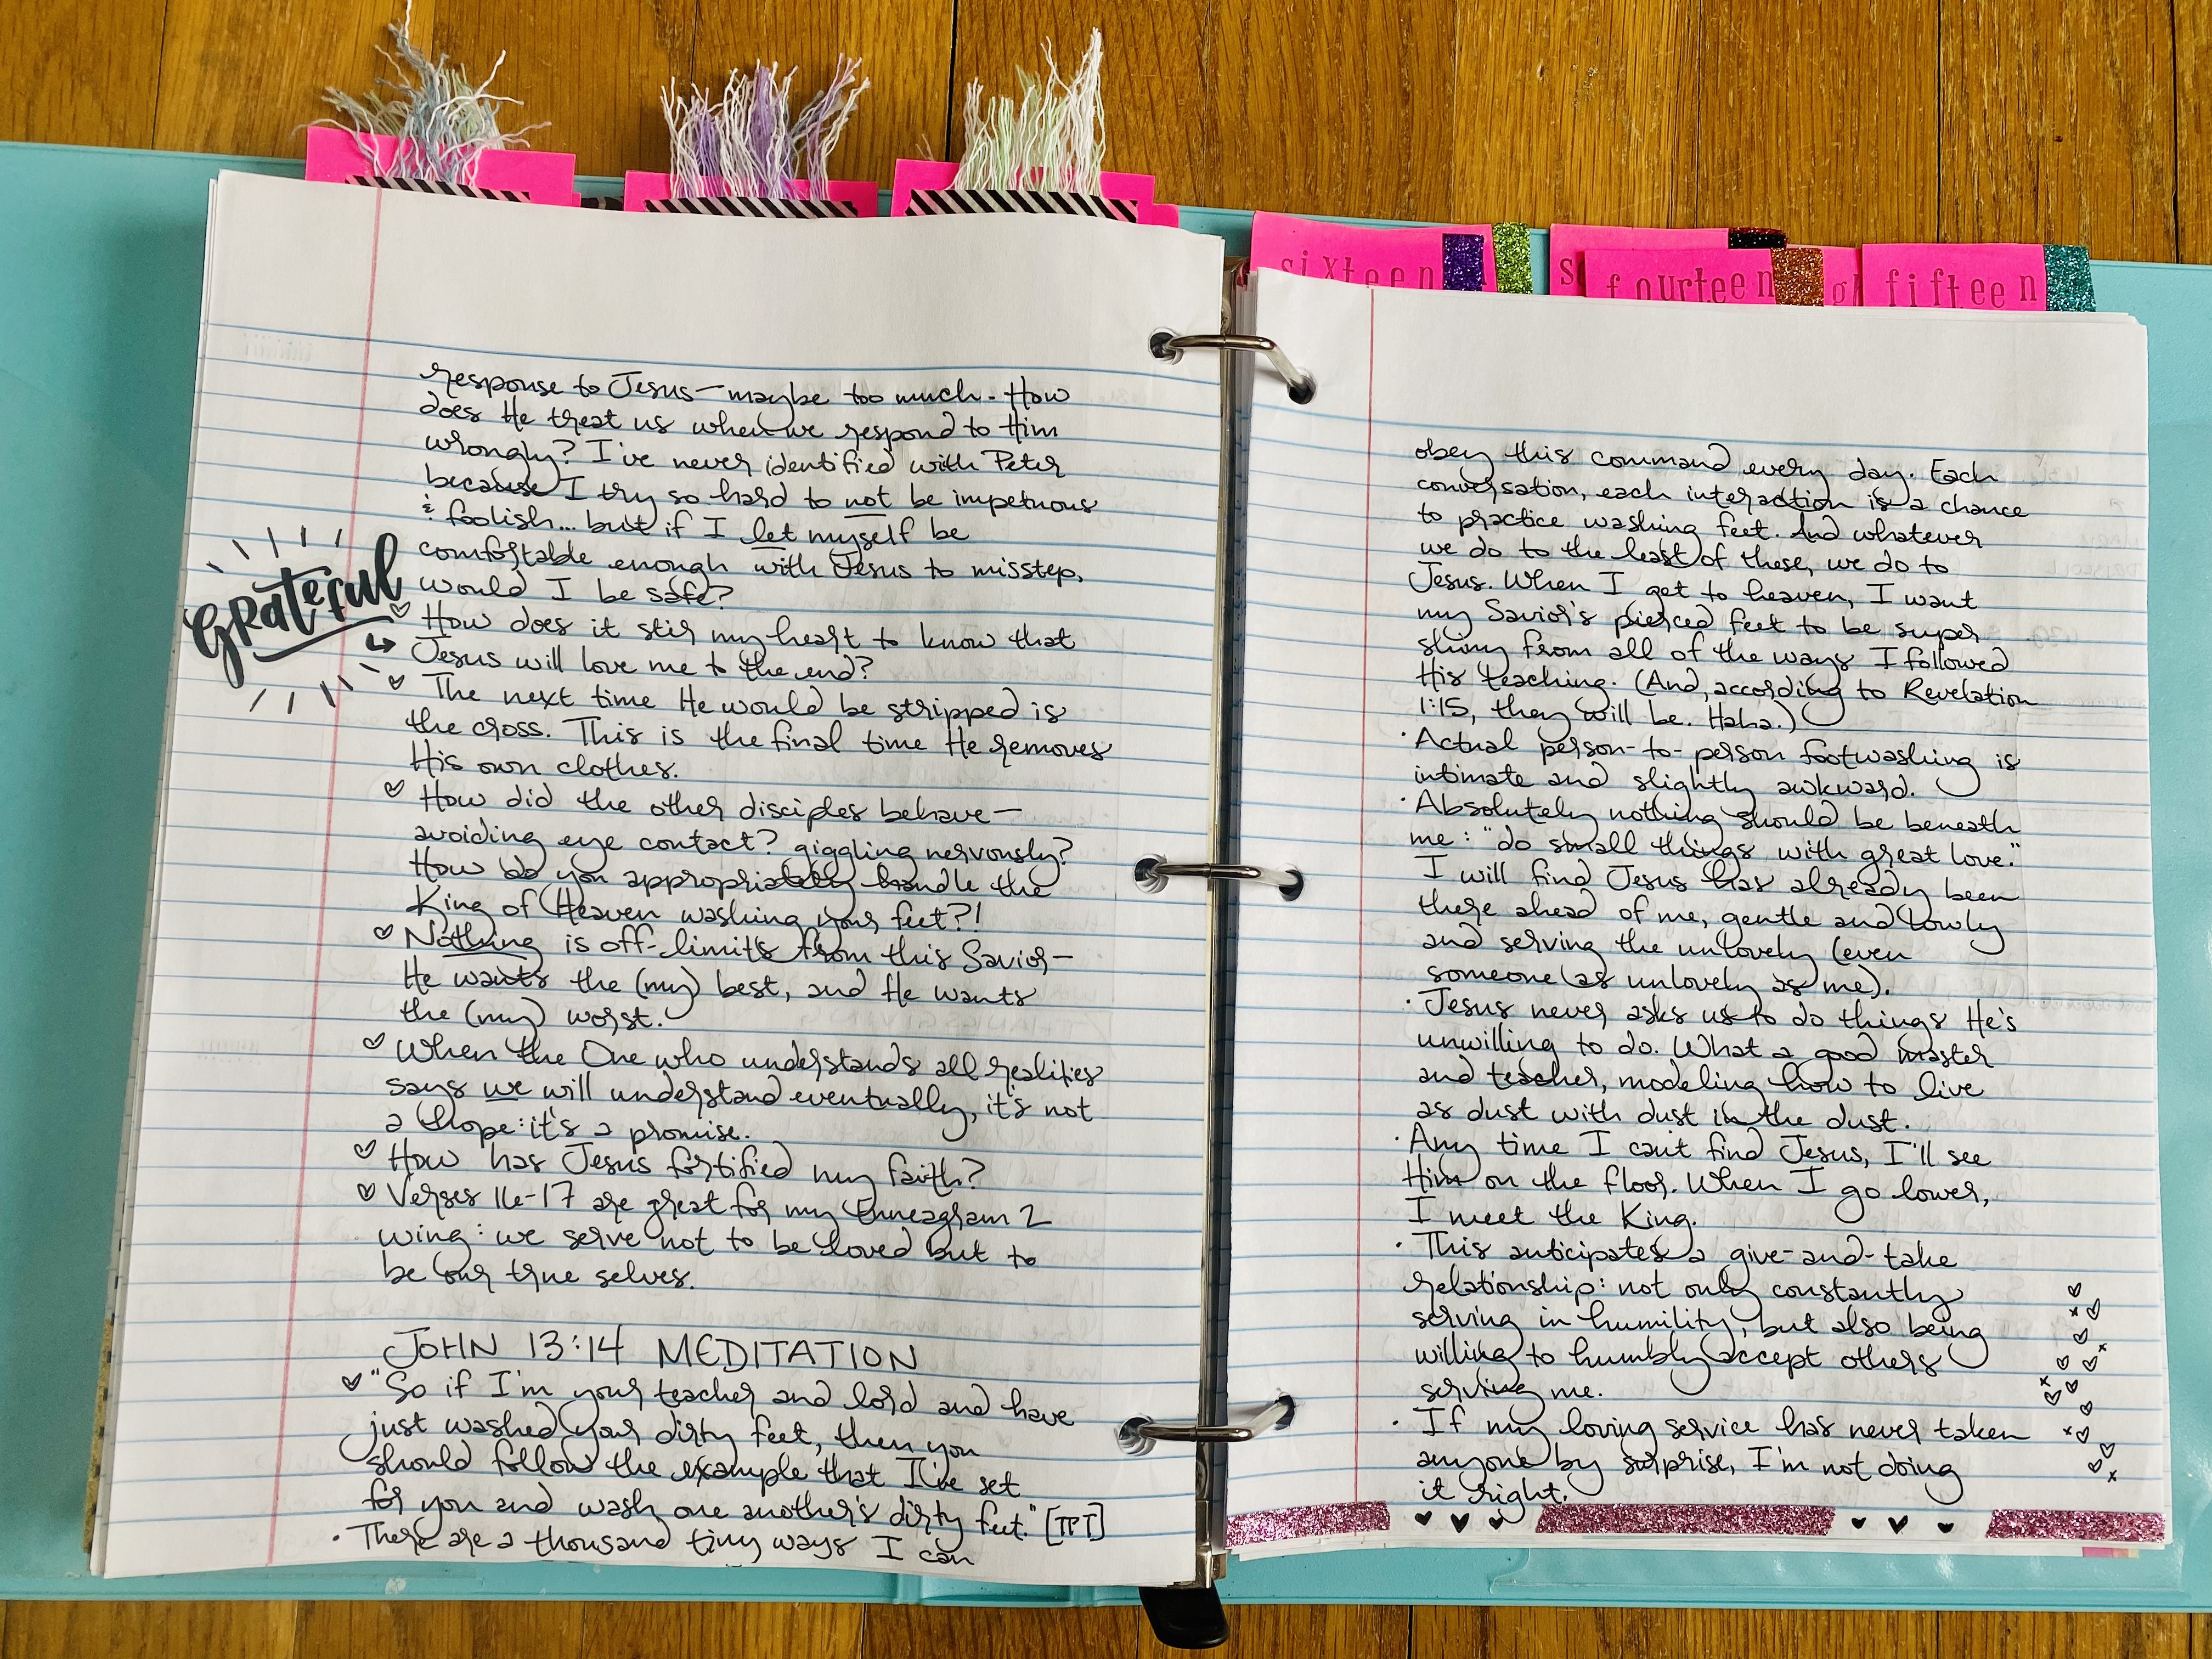 sixteen
fourteen
fifteen
response to Jesus—maybe too much. How
does He treat us when we respond to Him
wrongly? I've never identified with Peter
because I try so hard to not be impetuous
& foolish... but if I let myself be
comfortable enough with Jesus to misstep,
would I be safe?
grateful
♡ How does it stir my heart to know that
↳ Jesus will love me to the end?
♡ The next time He would be stripped is
the cross. This is the final time He removes
His own clothes.
♡ How did the other disciples behave—
avoiding eye contact? giggling nervously?
How do you appropriately handle the
King of Heaven washing your feet?!
♡ Nothing is off-limits from this Savior—
He wants the (my) best, and He wants
the (my) worst.
♡ When the One who understands all realities
says we will understand eventually, it's not
a hope: it's a promise.
♡ How has Jesus fortified my faith?
♡ Verses 16-17 are great for my Enneagram 2
wing: we serve not to be loved but to
be our true selves.
JOHN 13:14 MEDITATION
♡ "So if I'm your teacher and lord and have
just washed your dirty feet, then you
should follow the example that I've set
for you and wash one another's dirty feet." [TPT]
• There are a thousand tiny ways I can
obey this command every day. Each
conversation, each interaction is a chance
to practice washing feet. And whatever
we do to the least of these, we do to
Jesus. When I get to heaven, I want
my Savior's pierced feet to be super
shiny from all of the ways I followed
His teaching. (And, according to Revelation
1:15, they will be. Haha.)
• Actual person-to-person footwashing is
intimate and slightly awkward.
• Absolutely nothing should be beneath
me: "do small things with great love."
I will find Jesus has already been
there ahead of me, gentle and lowly
and serving the unlovely (even
someone as unlovely as me).
• Jesus never asks us to do things He's
unwilling to do. What a good master
and teacher, modeling how to live
as dust with dust in the dust.
• Any time I can't find Jesus, I'll see
Him on the floor. When I go lower,
I meet the King.
• This anticipates a give-and-take
relationship: not only constantly
serving in humility, but also being
willing to humbly accept others
serving me.
• If my loving service has never taken
anyone by surprise, I'm not doing
it right.